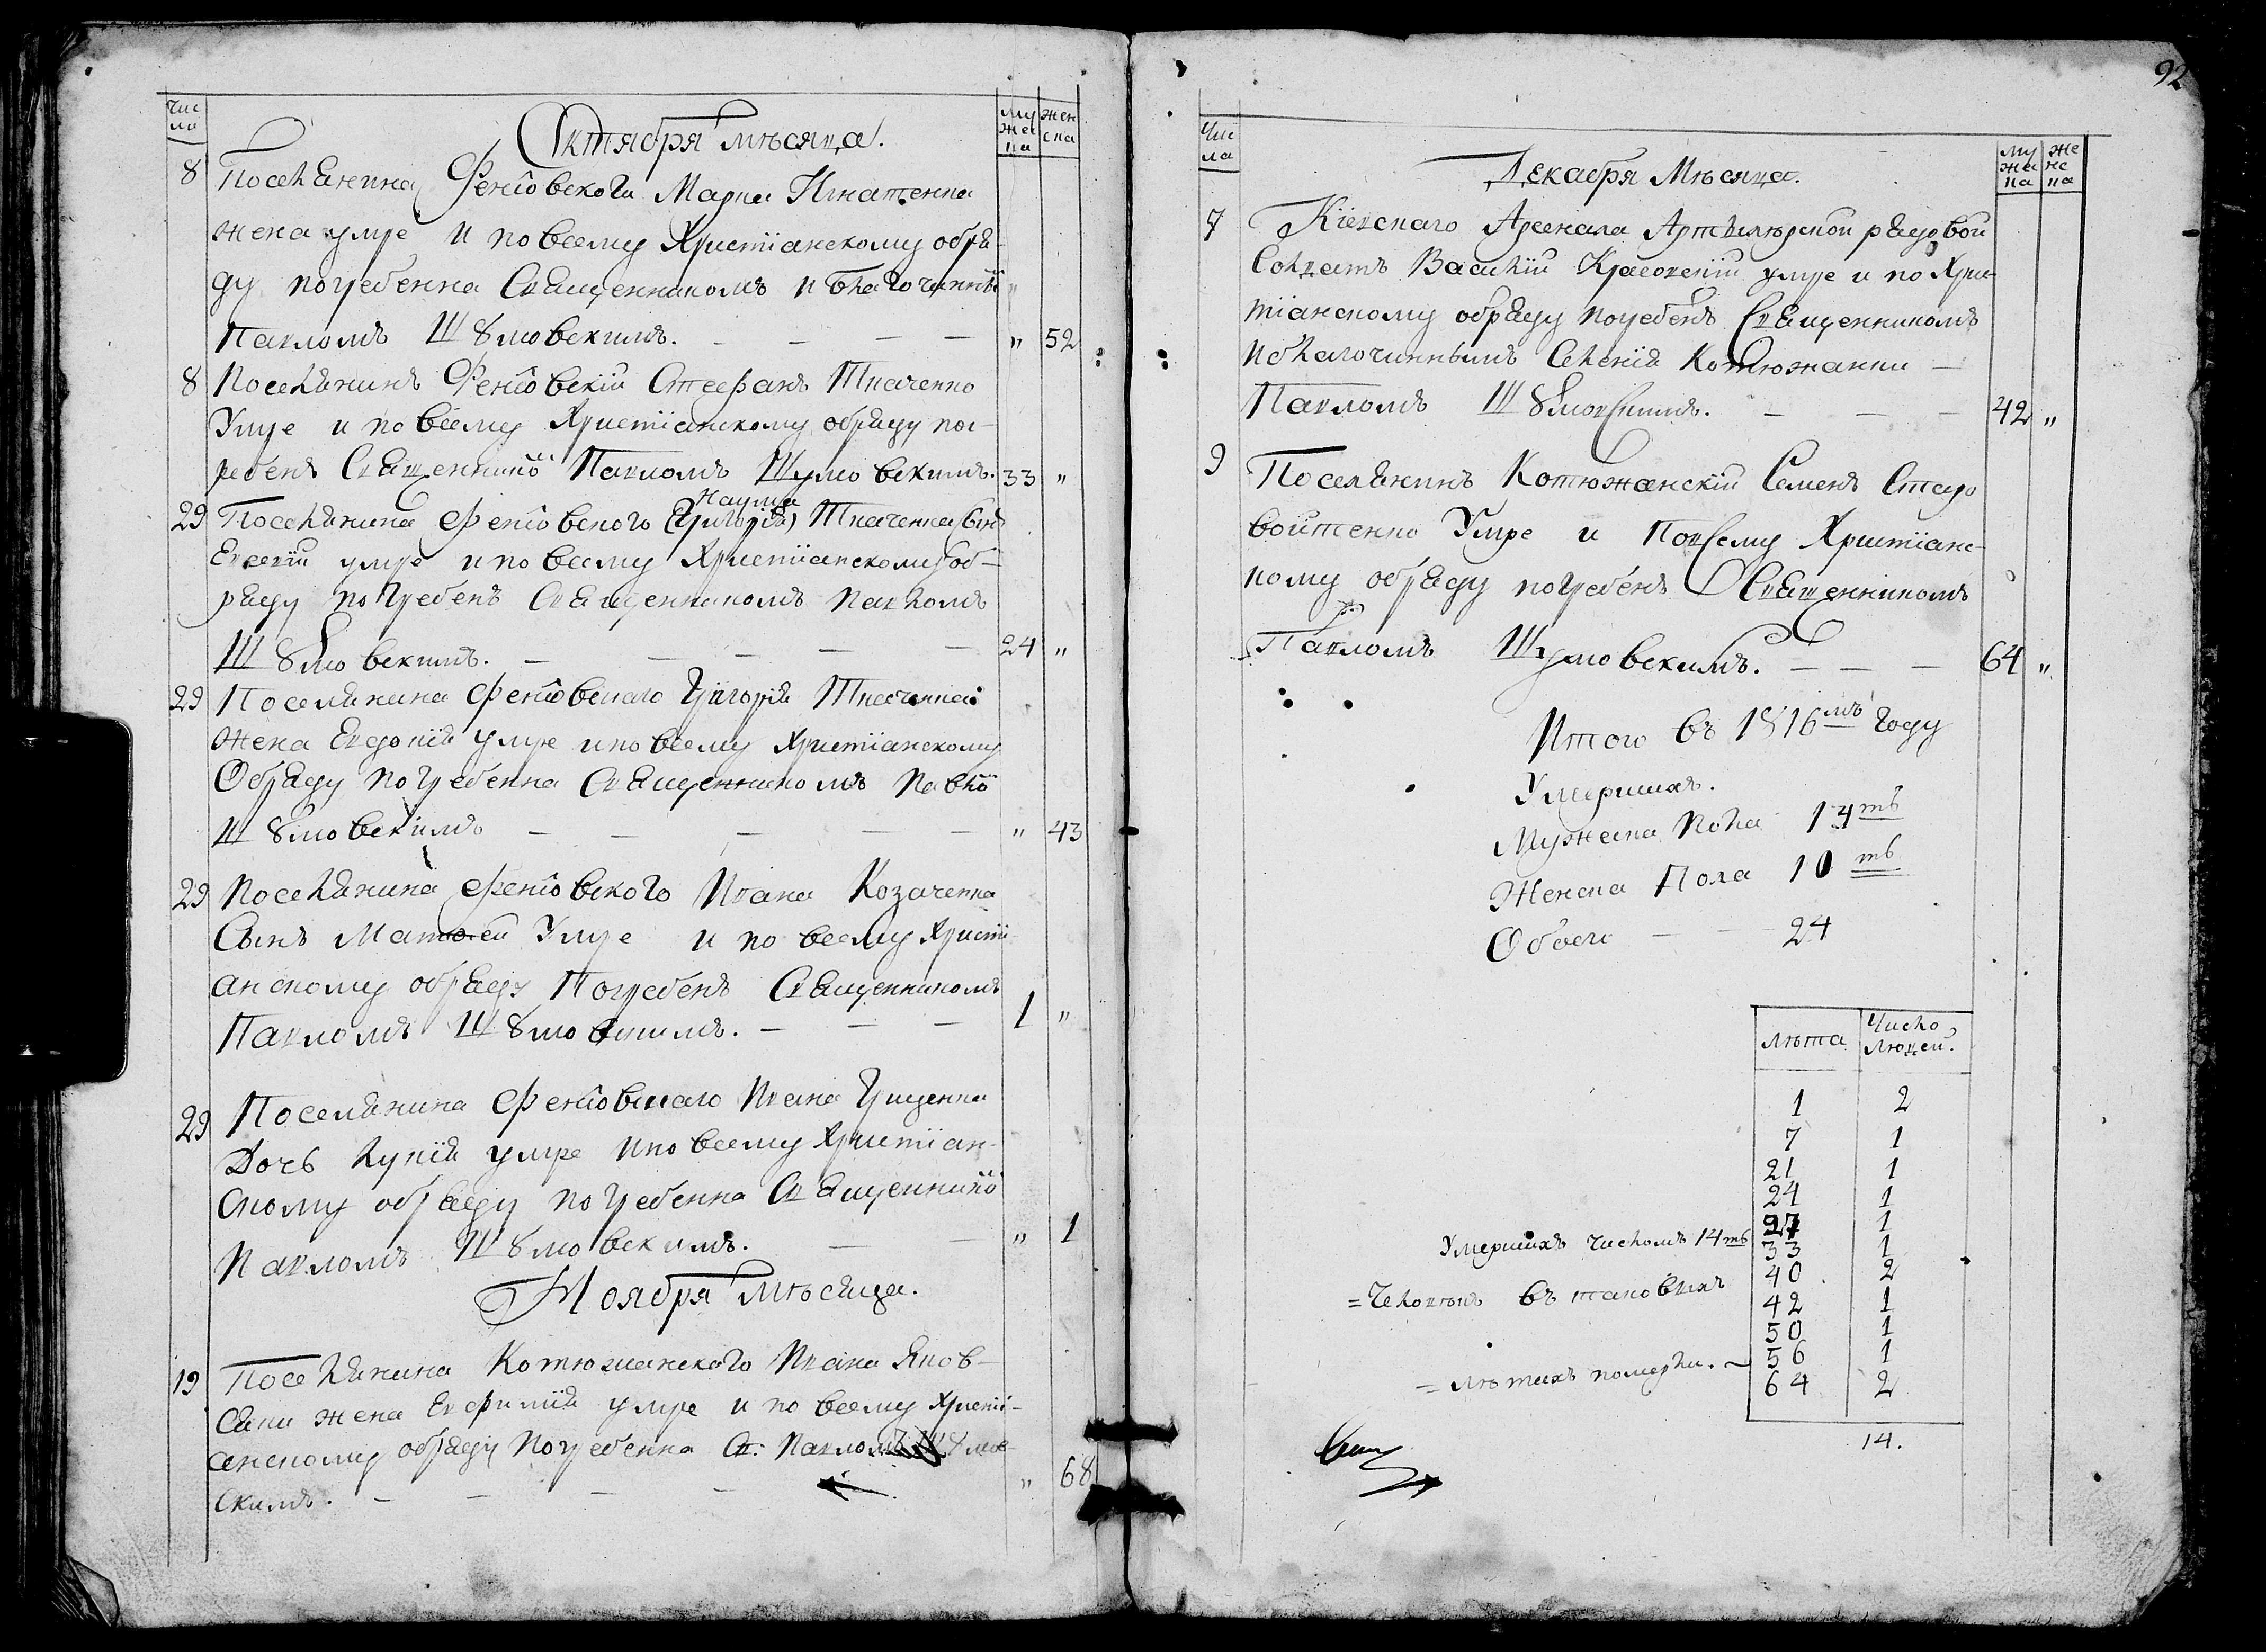 Чис
ла
му
жес
ка
жен
ска
Октября мѣсяца.
8 Поселянина Фенковского Марка Игнатенка
жена умре и по всему Христіанскому обря-
ду погребенна Священникомъ и благочинны
Павломъ Шумовскимъ. — — — — „ 52
8 Поселянинъ Фенковскій Стефанъ Ткаченко
Умре и по всему Христіанскому обряду пог-
ребенъ Священнико Павломъ Шумовскимъ. 33 „
Наума
29 Поселянина Фенковского (Григорія) Ткаченка сынъ
Евсевій умре и по всему Христіанскому об-
ряду погребенъ Священникомъ Павломъ
Шумовскимъ. — — — — — 24 „
29 Поселянина Фенковскаго Григорія Ткаченка
жена Евдокія умре и по всему Христіанскому
Обряду погребенна Священникомъ Павло
Шумовскимъ — — — — — „ 43
29 Поселянина Фенковского Ивана Козаченка
Сынъ Матѳей Умре и по всему Христі-
анскому обряду Погребенъ Священникомъ
Павломъ Шумовскимъ. — — — 1 „
29 Поселянина Фенковскаго Ивана Грищенка
Дочь Лукія умре и по всему Христіан-
скому обряду погребенна Священнико
Павломъ Шумовскимъ. — — „ 1
Ноября Мѣсяца.
19 Поселянина Котюжанского Ивана Яков-
жена Евфимія умре и по всему Христі-
анскому обряду погребенна Св: Павломъ Шумов-
скимъ. — — — — „ 68
92
Чис
ла
му
жес
ка
же
нс
ка
Декабря Мѣсяца.
7 Кіевскаго Арсенала Артилѣрской рядовой
Солдатъ Василій умре и по Хрис
тіанскому обряду погребенъ Священникомъ
и благочиннымъ Селенія Котюжанки —
Павломъ Шумовскимъ. — — — 42 „
9 Поселянинъ Котюжанскій Семенъ Старо
войтенко Умре и По всему Христіанс-
кому обряду погребенъ Священникомъ
Павломъ Шумовскимъ. — — — 64 „
Итого въ 1816мъ Году
Умершихъ.
Мужеска Пола 14ть
Женска Пола 10ть
Обоего — — 24
Лѣта Число Людей.
1 2
7 1
21 1
24 1
27 1
Умершихъ числомъ 14ть 33 1
40 2
=Человѣкъ въ таковыхъ 42 1
50 1
=лѣтахъ померли. — 56 1
64 2
14.